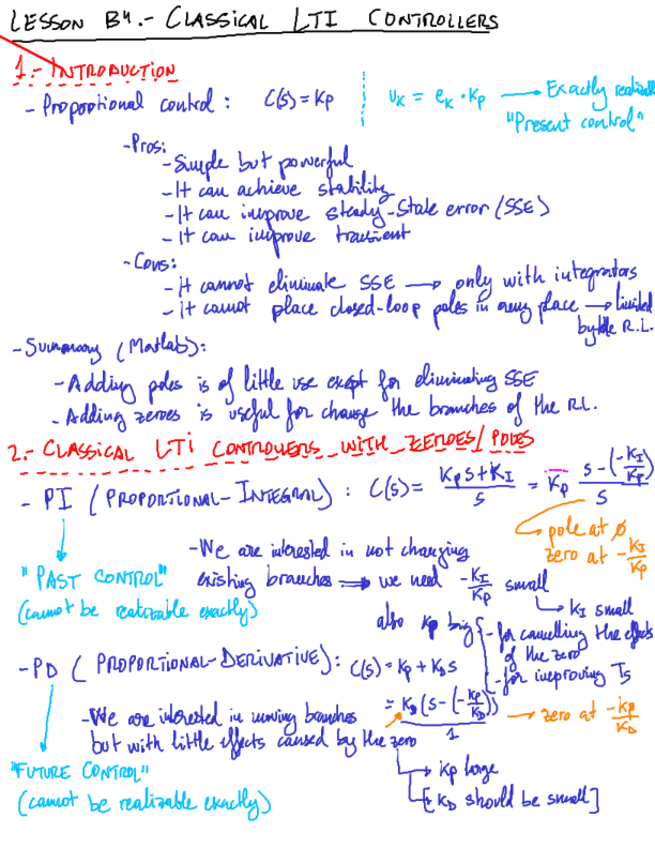 LESSON B4.- CLASSICAL LTI CONTROLLERS
1.- INTRODUCTION
- Proportional control: C(s) = Kp | uK = eK · Kp → Exactly
"Present control"
- Pros:
- Simple but powerful
- It can achieve stability
- It can improve steady-state error (SSE)
- It can improve transient
- Cons:
- it cannot eliminate SSE → only with integrators
- it cannot place closed-loop poles in any place → limited
by the R.L.
- Summary (Matlab):
- Adding poles is of little use exept for eliminating SSE
- Adding zeroes is useful for change the branches of the R.L.
2.- CLASSICAL LTI CONTROLLERS WITH ZEROES/POLES
- PI (PROPORTIONAL-INTEGRAL): C(s) = (Kp s + KI)/s = Kp (s - (-KI/Kp))/s
→ pole at ø
zero at -KI/Kp
"PAST CONTROL"
(cannot be realizable exactly)
- We are interested in not changing
existing branches ⇒ we need -KI/Kp small
↳ KI small
also Kp big { - for cancelling the effects
of the zero
- for improving Ts
- PD (PROPORTIONAL-DERIVATIVE): C(s) = Kp + KD s
= KD (s - (-Kp/KD))/1 → zero at -Kp/KD
- We are interested in moving branches
but with little effects caused by the zero
↳ Kp large
[KD should be small]
"FUTURE CONTROL"
(cannot be realizable exactly)